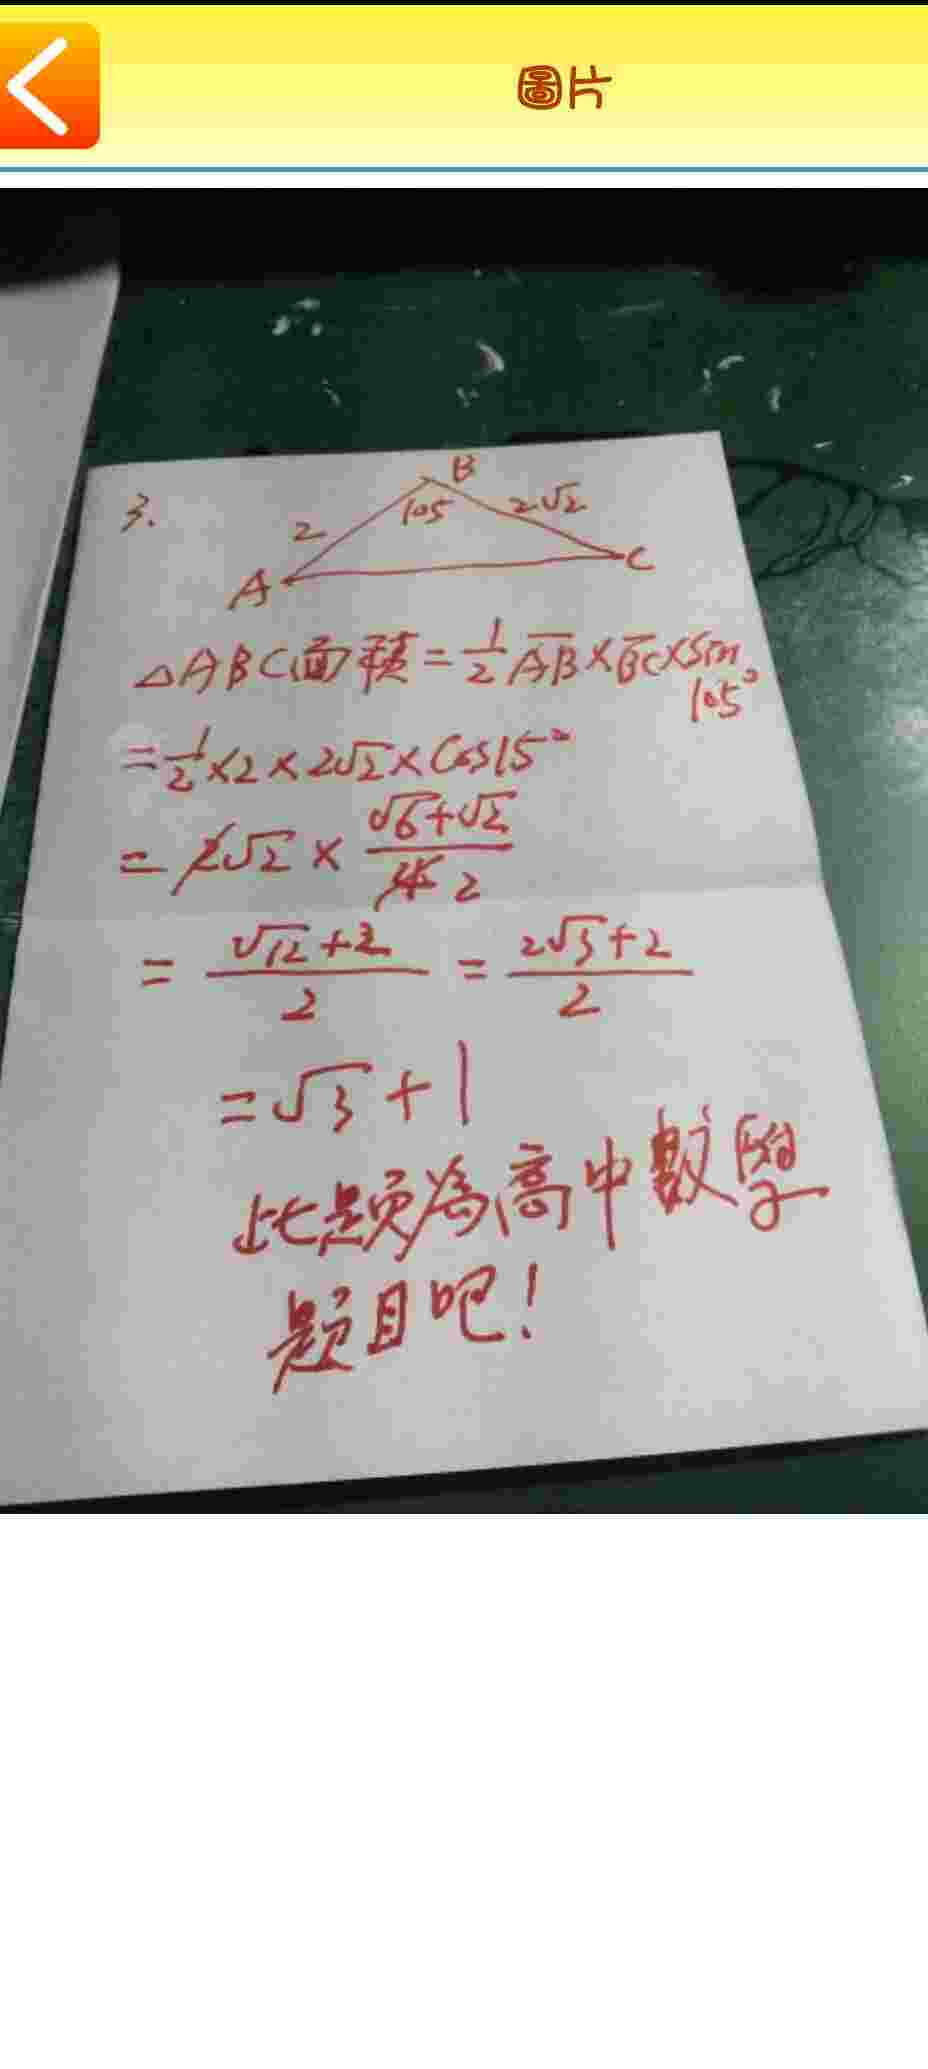 圖片
3.
B
2 105 2√2
A C
△ABC面積=1/2 A̅B̅×B̅C̅×Sin
105°
=1/2×2×2√2×Cos15°
=2√2×(√6+√2)/4 2
=(√12+2)/2=(2√3+2)/2
=√3+1
此题為高中數學
题目吧!